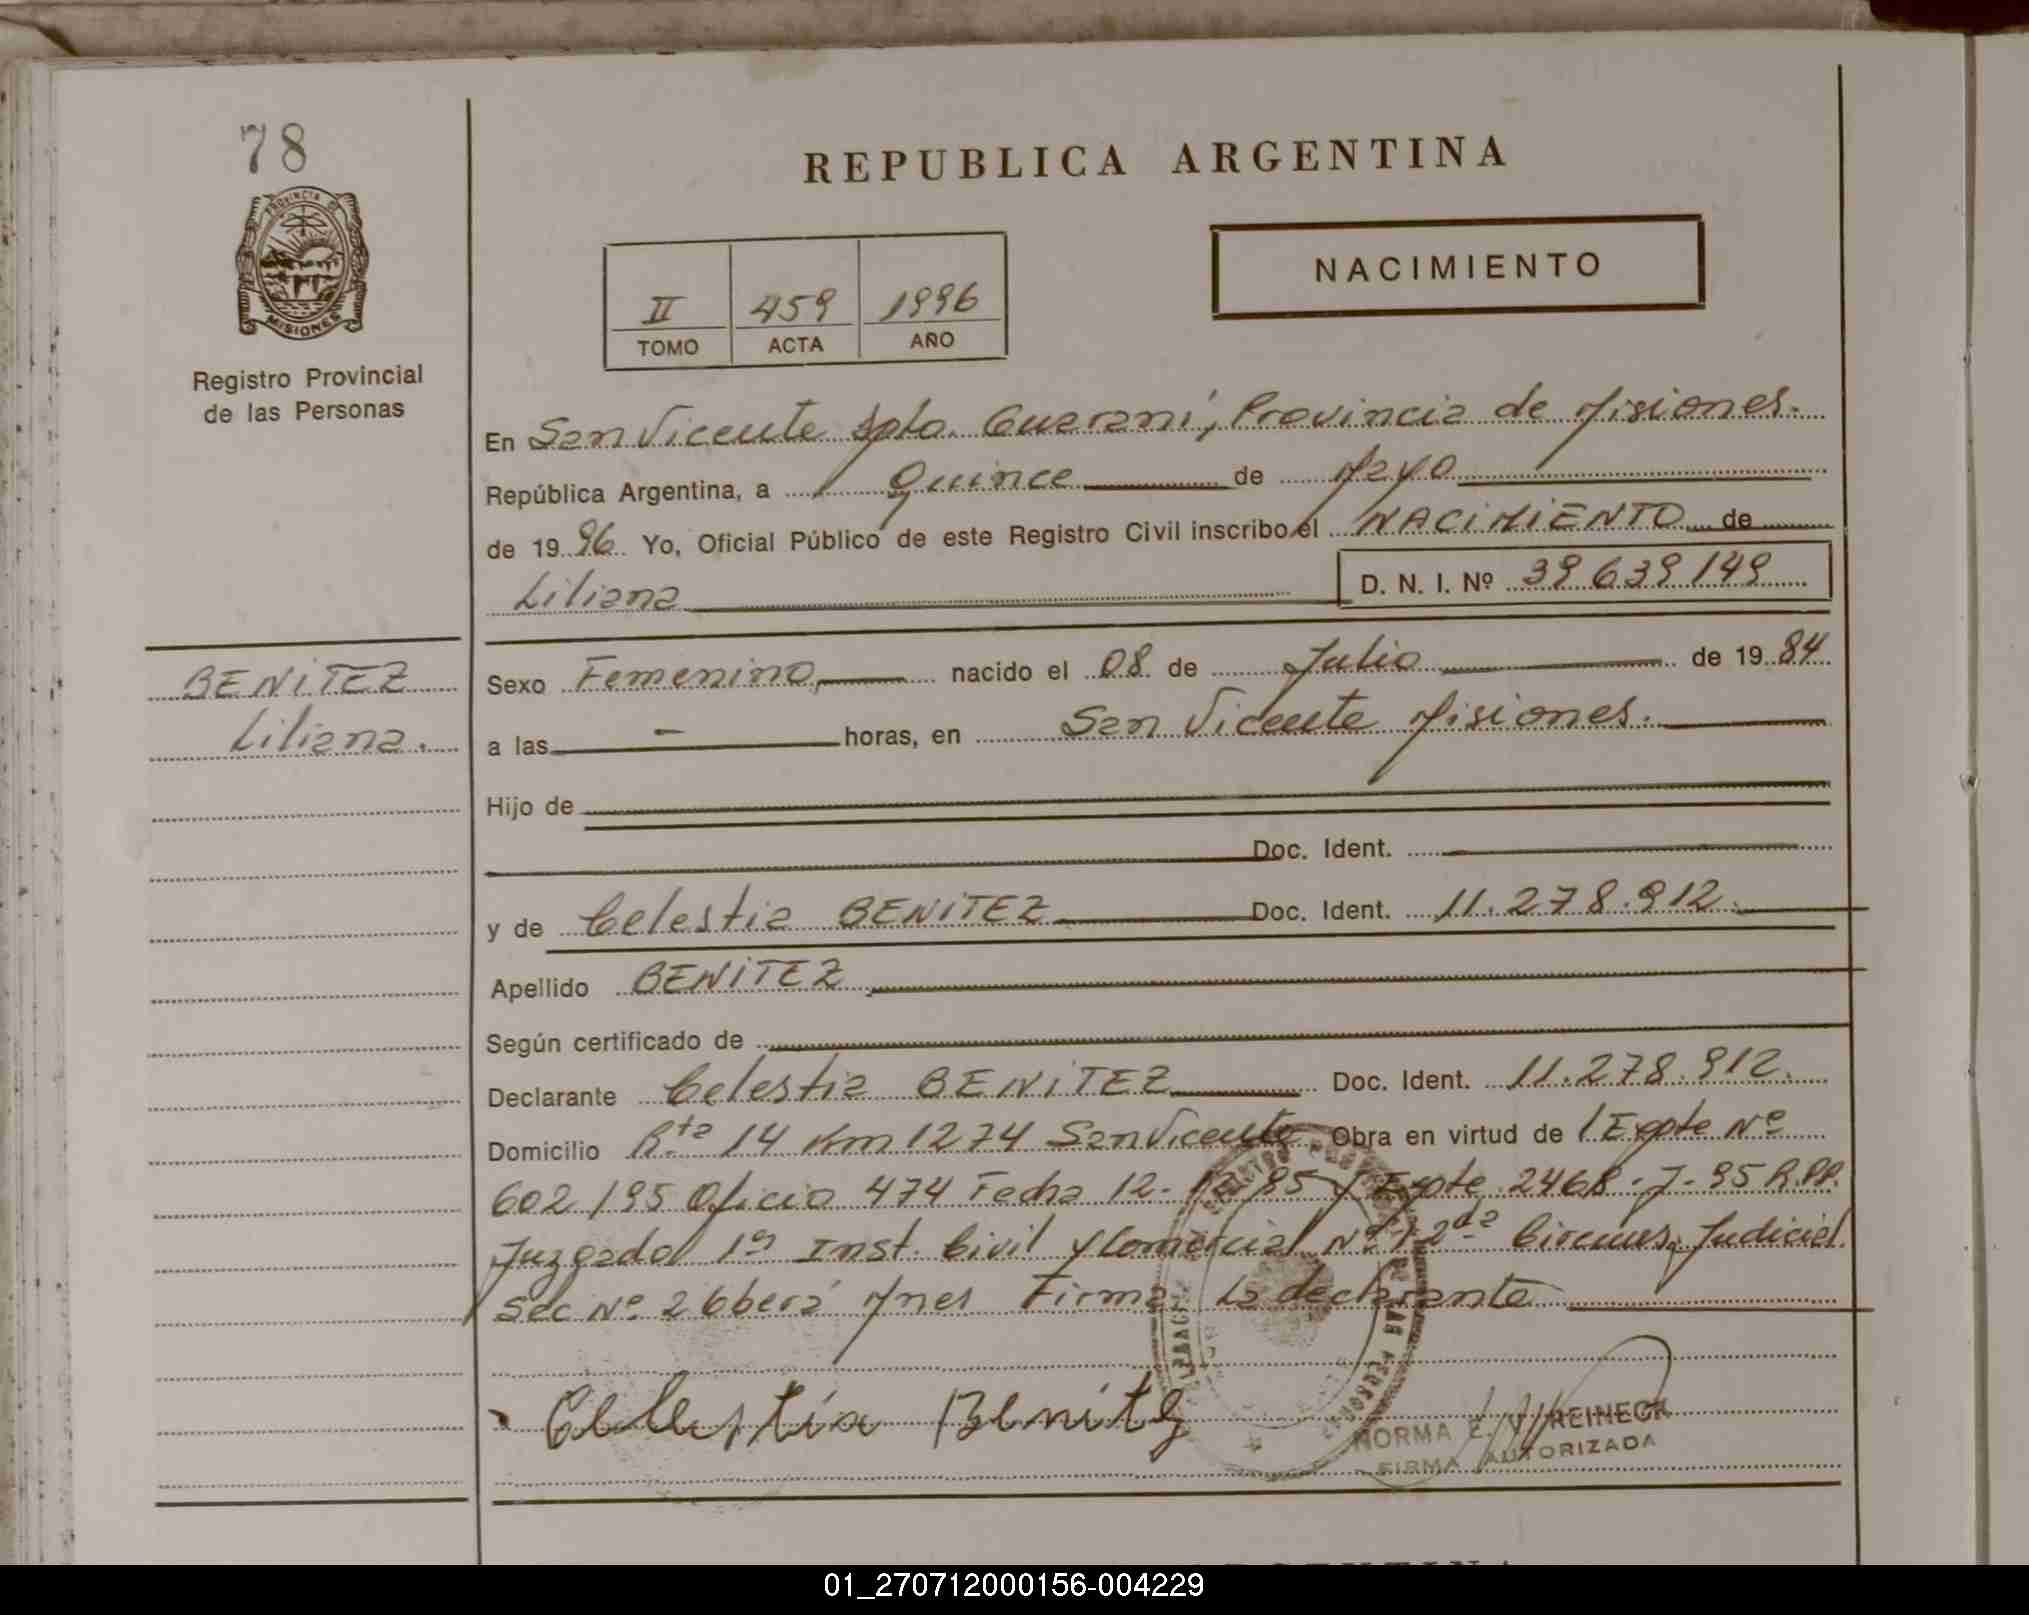 78
REPUBLICA ARGENTINA
PROVINCIA DE
MISIONES
NACIMIENTO
II 459 1996
TOMO ACTA AÑO
Registro Provincial
de las Personas
En San Vicente Dpto. Guaraní, Provincia de Misiones.
República Argentina, a Quince de Mayo
de 1996 Yo, Oficial Público de este Registro Civil inscribo el NACIMIENTO de
Liliana D. N. I. Nº 39 639 149
BENITEZ
Liliana.
Sexo Femenino, nacido el 08 de Julio de 1984
a las - horas, en San Vicente Misiones.
Hijo de
Doc. Ident.
y de Celestia BENITEZ Doc. Ident. 11.278.912.
Apellido BENITEZ
Según certificado de
Declarante Celestia BENITEZ Doc. Ident. 11.278.912.
Domicilio Rta 14 Km 1274 San Vicente Obra en virtud de Expte Nº
602/95 Oficio 474 Fecha 12- 95 y Expte 2468-J-95 R.PP.
Juzgado 1º Inst. Civil y Comercial Nº 2da Circuns. Judicial
Sec Nº 2 Oberá Mnes Firma la declarante
Celestia Benitez
NORMA E. REINECK
FIRMA AUTORIZADA
01_270712000156-004229